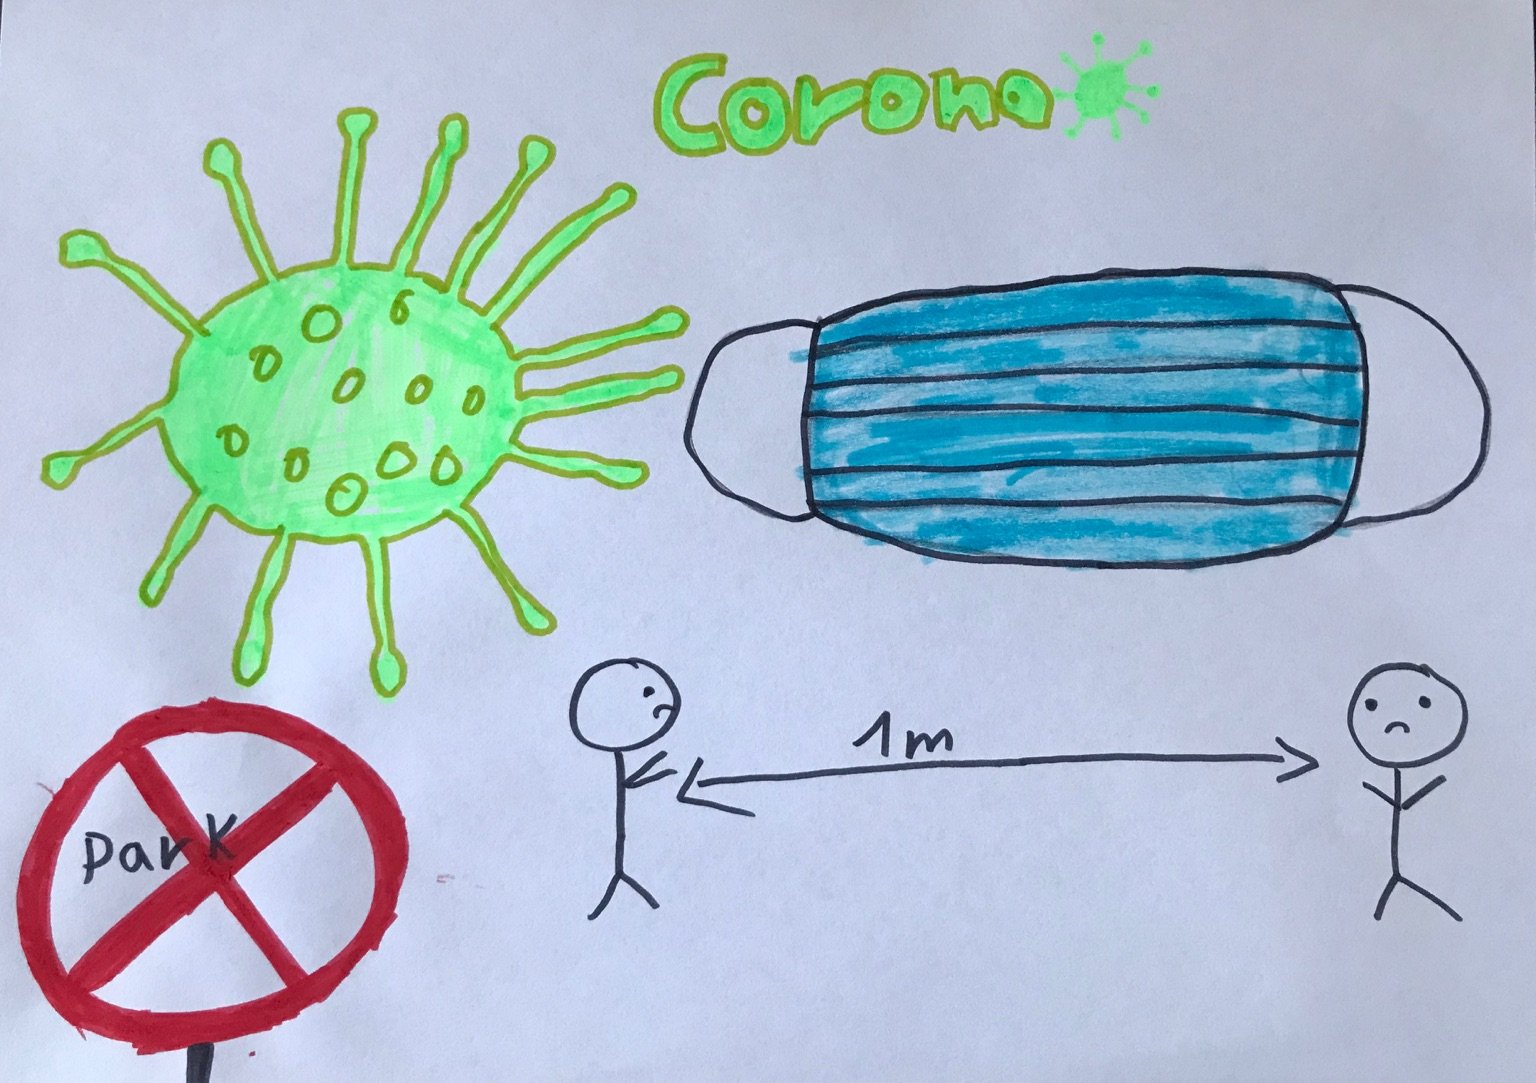 Corona
1m
Park